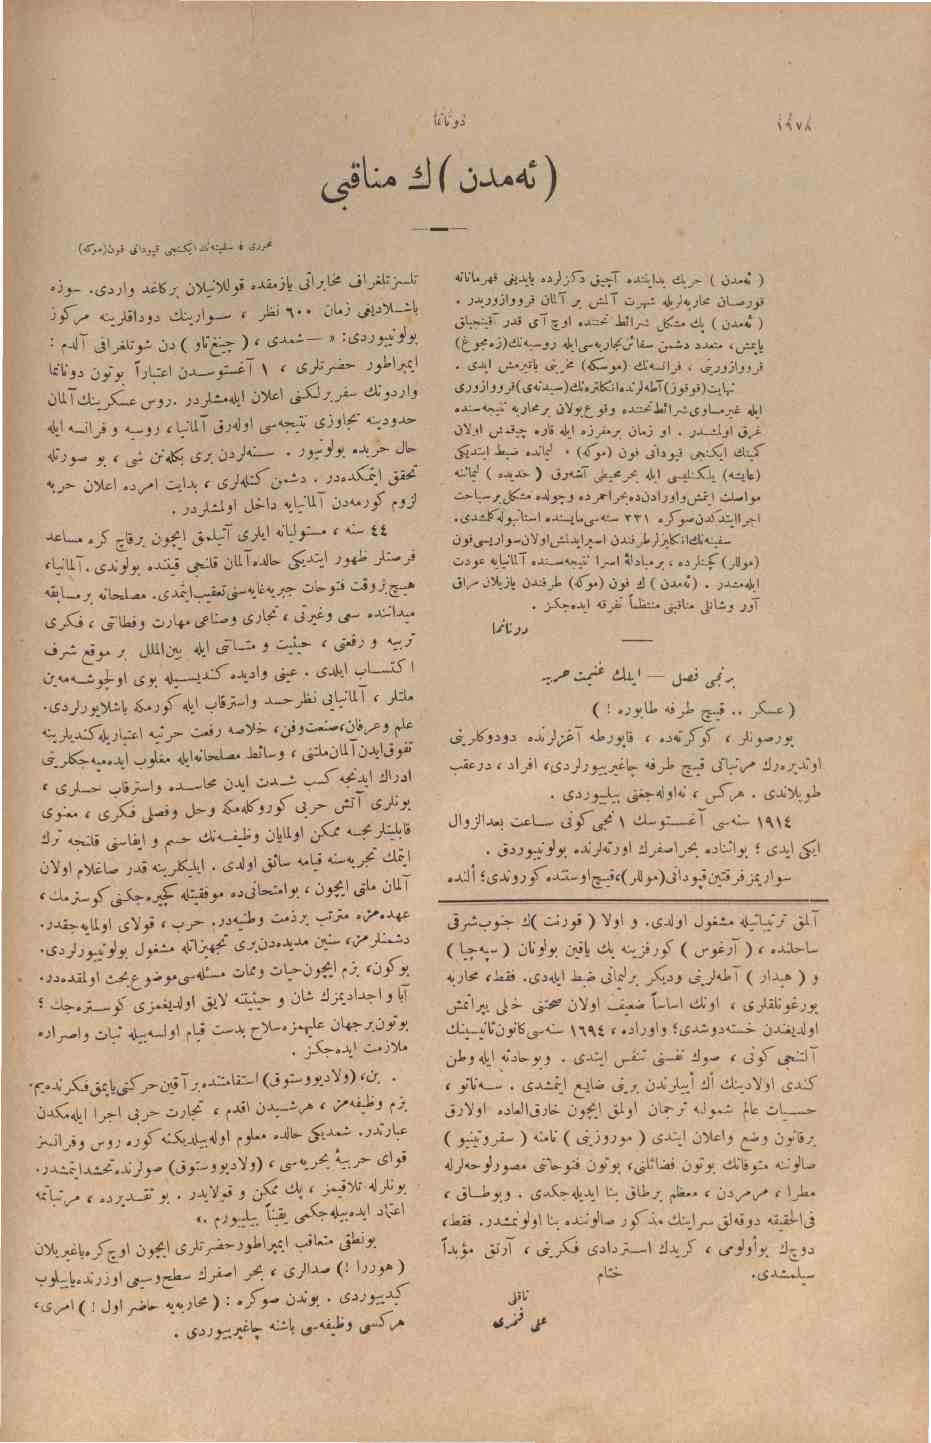 ١٢٧٨
دونانما
( ئه‌مدن ) ك مناقبی
محرری : سفینه‌نك ایكنجی قپودانی فون (موكه)
( ئه‌مدن ) حربك بدایتنده آچیق دكزلرده یاپدیغی قهرمانانه
قورصان محاربه‌لریله شهرت آلمش بر آلمان قرووازوریدر .
( ئه‌مدن ) پك مشكل شرائط تحتنده اوچ آی قدر آقینجیلق
یاپمش ، متعدد دشمن سفائن تجاریه‌سی ایله روسیه‌نك (ژه‌مچوغ)
قرووازورینی ، فرانسه‌نك (موسكه) مخربنی باتیرمش ایدی .
نهایت (قوقوز) آطه‌لرنده انكلتره‌نك (سیدنه‌ی) قرووازوری
ایله غیرمساوی شرائط تحتنده وقوع بولان بر محاربه نتیجه‌سنده
غرق اولمشدر . او زمان بر مفرزه ایله قاره چیقمش اولان
كمینك ایكنجی قپودانی فون (موكه) ، لیمانده ضبط ایتدیكی
(عایشه) یلكنلیسی ایله بحر محیطی آشه‌رق ( حدیده ) لیماننه
مواصلت ایتمش واورادن ده بحر احمرده وچولده مشكل بر سیاحت
اجرا ایتدكدن صوكره ٣٣١ سنه‌سی مایسنده استانبوله كلمشدی.
سفینه‌نك انكلیزلر طرفندن اسیر ایدلمش اولان سواریسی فون
(موللر) كچنلرده ، بر مبادلۀ اسرا نتیجه‌سنده آلمانیایه عودت
ایله‌مشدر . (ئه‌مدن) ك فون (موكه) طرفندن یازیلان مراق
آور وشانلی مناقبنی منتظماً تفرقه ایده‌جكز .
دونانما
برنجی فصل — ایلك غنیمت حربیه
( عسكر .. قیچ طرفه طابوره ! )
بورصونلر ، كوكرته‌ده ، قاپورطه آغزلرنده دودوكلرینی
اوتدیره‌رك مرتباتی قیچ طرفه چاغیریبورلردی، افراد ، درعقب
طوپلاندی . هركس ، نه اوله‌جغنی بیلییوردی .
١٩١٤ سنه‌سی آغستوسك ١ نجی كونی ساعت بعدالزوال
ایكی ایدی ؛ بو اثناده بحر اصفرك اورته‌لرنده بولونییوردق .
سواریمز فرقتین قپودانی (موللر)، قیچ اوستنده كوروندی؛ النده
تلسز تلغراف مخابراتی یازمقده قوللانیلان بر كاغد واردی. سوزه
باشلادیغی زمان ٦٠٠ نظر ، سوارینك دوداقلرینه مركوز
بولونییوردی: « — شمدی ، ( چینغ‌تاو ) دن شو تلغرافی آلدم :
ایمپراطور حضرتلری ، ١ آغستوسدن اعتباراً بوتون دونانما
واردونك سفربرلكنی اعلان ایله‌مشلردر . روس عسكرینك آلمان
حدودینه تجاوزی نتیجه‌سی اوله‌رق آلمانیا، روسیه و فرانسه ایله
حال حربده بولونیور . سنه‌لردن بری بكله‌نن شی ، بو صورتله
تحقق ایتمكده‌در . دشمن كتله‌لری ، بدایت امرده اعلان حربه
لزوم كورمه‌دن آلمانیایه داخل اولمشلردر .
٤٤ سنه ، مستولیانه ایلری آتیلمق ایچون برقاچ كره مساعد
فرصتلر ظهور ایتدیكی حالده آلمان قلنجی قیننده بولوندی . آلمانیا،
هیچ بر وقت فتوحات جبریه غایه‌سنی تعقیب ایتمدی. مصلحانه بر مسابقه
میداننده سعی وغیرتی ، تجاری وصناعی مهارت وفطانتی ، فكری
تربیه و رفعتی ، حیثیت و متانتی ایله بین‌الملل بر موقع شرف
اكتساب ایلدی . عینی وادیده كندیسیله بوی اولچوشه‌مه‌ین
ملتلر ، آلمانیایی نظر حسد واسترقاب ایله كورمكه باشلایورلردی.
علم وعرفان، صنعت وفن، خلاصه رفعت حرثیه اعتباریله كندیلرینه
تفوق ایدن آلمان ملتنی ، وسائط مصلحانه ایله مغلوب ایده‌میه‌جكلرینی
ادراك ایدنجه كسب شدت ایدن محاسده واسترقاب حسلری ،
بونلری آتش حربی كوروكله‌مكه وحل وفصلی فكری ، معنوی
قابلیتلرنجه ممكن اولمایان وظیفه‌نك حسم و ایفاسنی قلنجه ترك
ایتمك تجربه‌سنه قیامه سائق اولدی . ایلیكلرینه قدر صاغلام اولان
آلمان ملتی ایچون ، بو امتحانی ده موفقیتله كچیره‌جكنی كوسترمك ،
عهده‌مزه مترتب بر ذمت وطنیه‌در. حرب ، قولای اولمایه‌جقدر.
دشمنلرمز، سنین مدیده‌دن بری تجهیزاتله مشغول بولونییورلردی.
بوكون، بزم ایچون حیات وممات مسئله‌سی موضوع بحث اولمقده‌در.
آبا و اجدادیمزك شان و حیثیتنه لایق اولدیغمزی كوستره‌جك ؛
بوتون بر جهان علیهمزه سلاح بدست قیام اولسه بیله ثبات واصراره
ملازمت ایده‌جكز .
بن، (ولادیووستوق) استقامتنده بر آقین حركتی یاپمق فكرنده‌یم.
بزم وظیفه‌مز ، هر شیدن اقدم ، تجارت حربی اجرا ایله‌مكدن
عبارتدر. شمدیكی حالده معلوم اوله‌بیلدیكنه كوره روس وفرانسز
قوای حربیۀ بحریه‌سی ، (ولادیووستوق) صولرنده تحشد ایتمشدر.
بونلرله تلاقیمز ، پك ممكن و قولایدر . بو تقدیرده ، مرتباتمه
اعتماد ایده‌بیله‌جكمی یقیناً بیلییورم .»
بو نطقی متعاقب ایمپراطور حضرتلری ایچون اوچ كره باغیریلان
( هوررا ! ) صدالری ، بحر اصفرك سطح وسیعی اوزرنده یاییلوب
كیدییوردی . بوندن صوكره : ( محاربه‌یه حاضر اول ! ) امری،
هركسی وظیفه‌سی باشنه چاغیرییوردی .
آلمق ترتیباتیله مشغول اولدی. و اولا ( قورنت ) ك جنوب شرقی
ساحلنده ، ( آرغوس ) كورفزینه پك یاقین بولونان ( سپه‌چیا )
و ( هیدار ) آطه‌لرینی ودیكر بر لیمانی ضبط ایله‌دی. فقط، محاربه
یورغونلقلری ، اونك اساساً ضعیف اولان صحتنی خیلی ییپراتمش
اولدیغندن خسته دوشدی؛ واوراده ، ١٦٩٤ سنه‌سی كانون ثانیسینك
آلتنجی كونی ، صوك نفسنی تنفس ایتدی . وبو حادثه ایله وطن
كندی اولادینك اك اییلرندن برینی ضایع ایتمشدی . سه‌ناتو ،
حسیات عالم شموله ترجمان اولمق ایچون خارق العاده اولارق
بر قانون وضع واعلان ایتدی ( موروزینی ) نامنه ( سقروتینیو )
صالوننه متوفانك بوتون فضائلنی، بوتون فتوحاتنی مصور لوحه‌لرله
مطرا ، مرمردن ، معظم بر طاق بنا ایدیله‌جكدی . وبو طاق ،
فی الحقیقه دوقه‌لق سراینك مذكور صالوننده بنا اولونمشدر. فقط،
دوچ‌ك بو اولومی ، كریدك استردادی فكرینی ، آرتق مؤبداً
سیلمشدی.
ختام
ناقلی
علی فخری